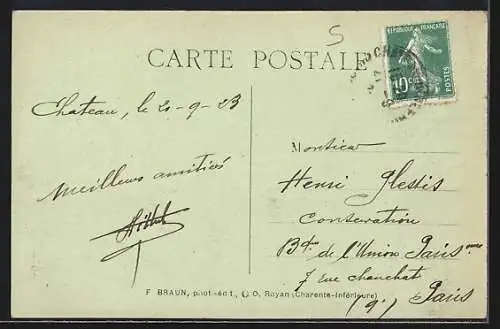 CARTE POSTALE
5
REPUBLIQUE FRANÇAISE
POSTES
10c
Chateau, le 21-9-23
Meilleurs amitiés
Monsieur
Henri
Conservation
Bd de l'Union Paris
7 rue chauchat
(9e) Paris
F. BRAUN, phot.-édit., Royan (Charente-Inférieure)